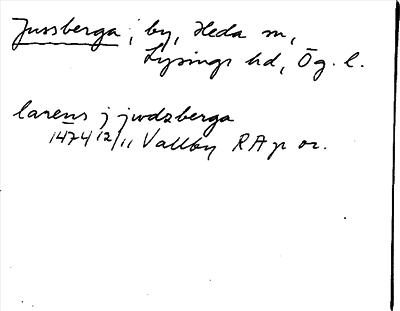 Jussberga, by, Heda sn,
Lysings hd, Ög. l.
larens j jwdzberga
1474 12/11 Vallby RAp or.